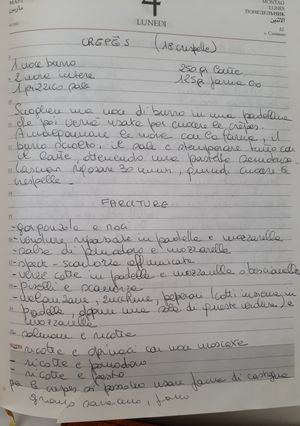 4
LUNEDI
MONTAG
LUNES
CREPES (18 crespelle)
1 noce burro 250 gr latte
2 uova intere 125 gr farina 00
1 pizzico sale
Sciogliere una noce di burro in una padellina
che poi verrà usata per cuocere le crêpes.
Amalgamare le uova con la farina, il
burro sciolto, il sale e stemperare tutto con
il latte, ottenendo una pastella semidensa.
Lasciar riposare 30 minuti, quindi cuocere le
crespelle.
FARCITURE
- gorgonzola e noci
- verdure ripassate in padella e mozzarella
- salsa di pomodoro e mozzarella
- speck - scamorza affumicata
- verze cotte in padella e mozzarella o
- piselli e
- melanzane, zucchine, peperoni (cotti insieme in
padella, oppure una sola di queste verdure) e
mozzarella
- salmone e ricotta
- ricotta e spinaci con noce moscata
- ricotta e pomodoro
- ricotta e pesto
per le crepes si possono usare farina di castagne
grano saraceno, farro